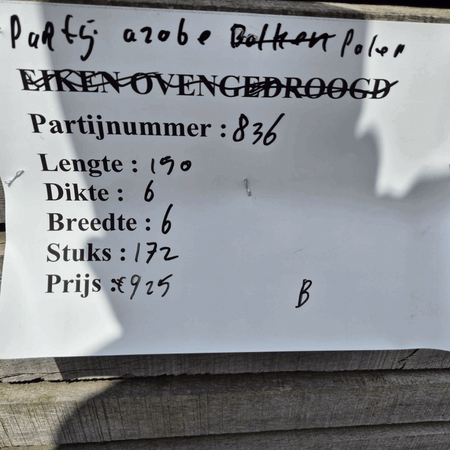 Partij azobe Balken Palen
EIKEN OVENGEDROOGD
Partijnummer : 836
Lengte : 190
Dikte : 6
Breedte : 6
Stuks : 172
Prijs :€925
B